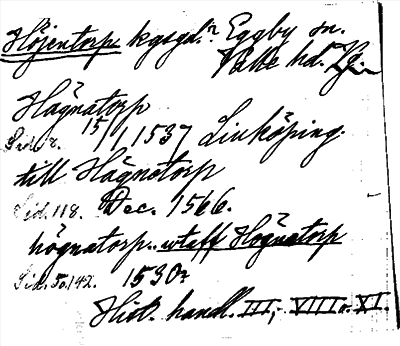 Höjentorp kgsgd. Eggby sn.
Valle hd. Vg.
Hägnatorp
Sid. 8. 15/1 1537 Linköping.
till Hägnatorp
Sid. 118. Dec. 1566.
högnatorp.. utaff Högnatorp
Sid. 50.142. 1530
Hist. handl. III, VIII o. XI.